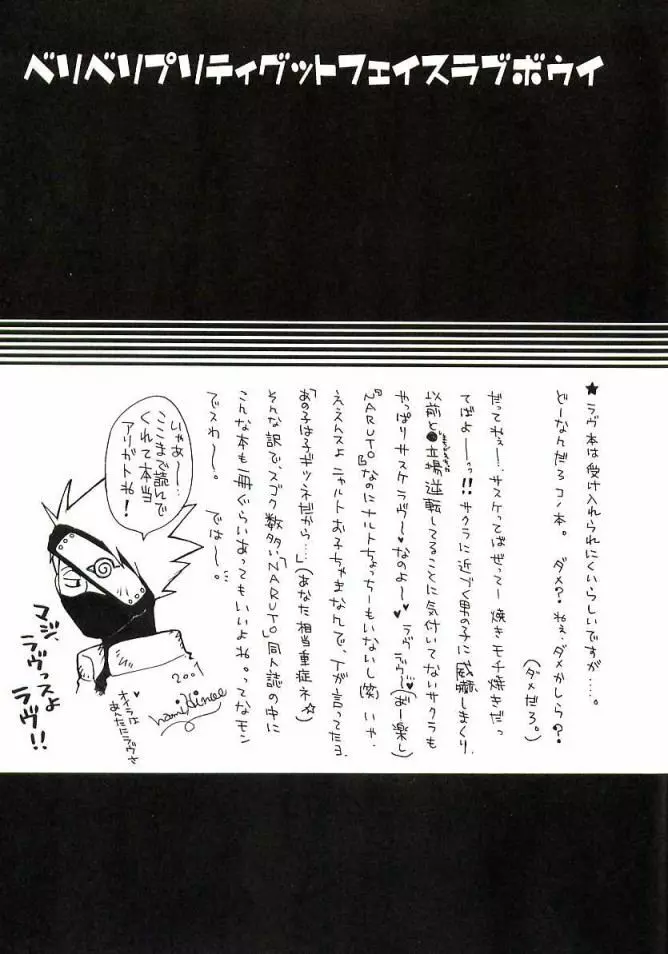 ベリベリプリティグットフェイスラブボウイ
★ラヴ本は受け入れられにくいらしいですが……。
どーなんだろコノ本。 ダメ?ねぇ、ダメかしら?
(ダメだろ。)
だってねぇー…サスケってばぜってー焼きモチ焼きだっ
てばよーっ!!サクラに近づく男の子に威嚇しまくり、
以前と立場逆転してることに気付いてないサクラも
やっぱりサスケラヴ〜♥なのよ〜♥ラヴラヴ〜♥(おー楽し)
『NARUTO』なのにナルトちょっちーもいないし(笑)いや、
ええんスよニャルトお子ちゃまなんで、Tが言ってたヨ
「あの子は子ギツネだから…」(あなた相当重症ネ☆)
そんな訳で、スゴク数多い「NARUTO」同人誌の中に
こんな本も一冊ぐらいあってもいいよね。ってなモン
でスわ〜。 では〜。
じゃあ〜…
ここまで読んで
くれて本当
アリガトね!
マジ、
ラヴっスよ
ラヴ!!
オイラは
あんたにラヴさ
2001